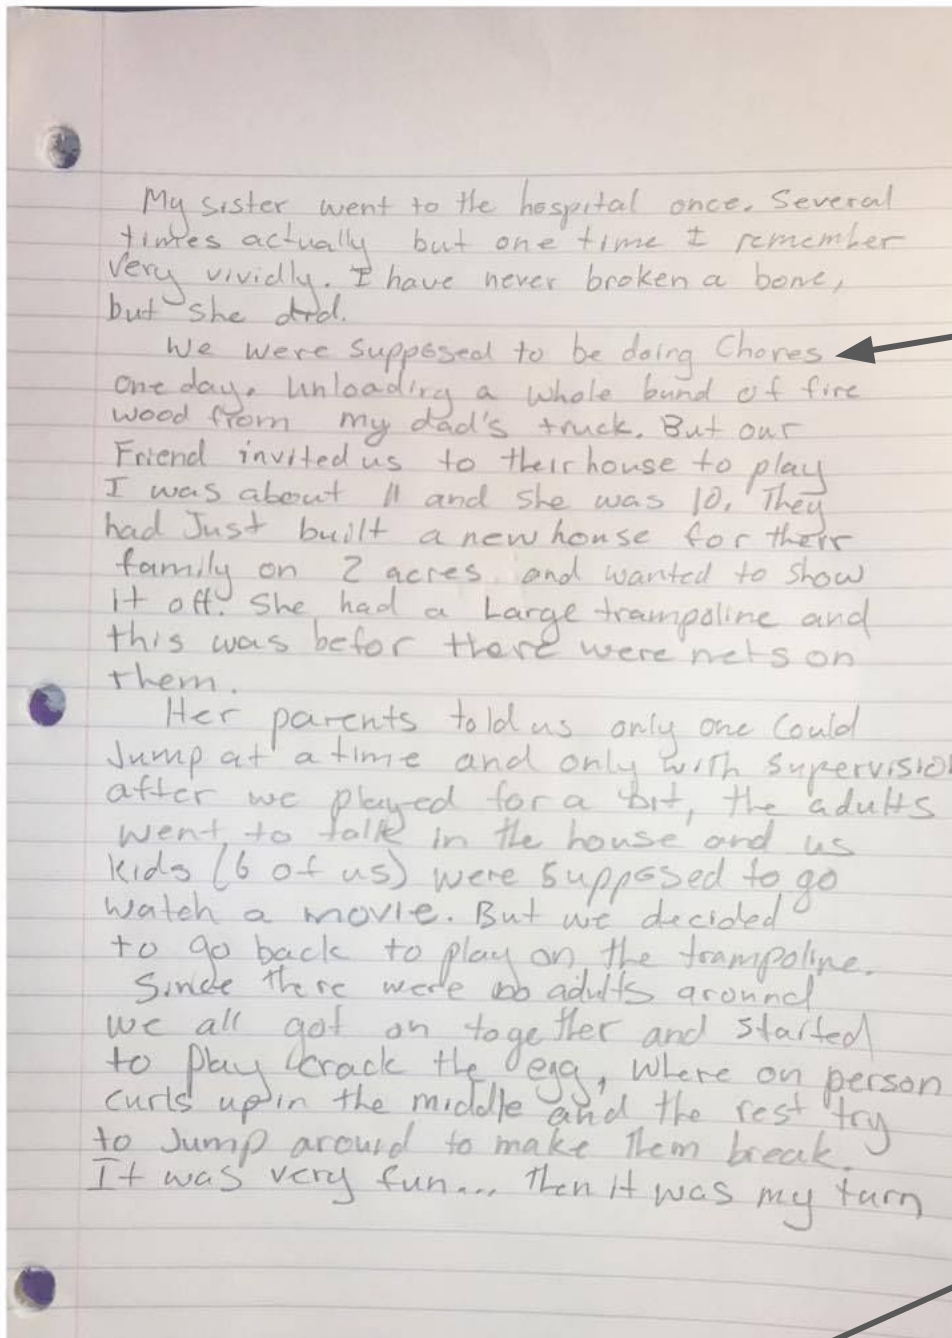 My sister went to the hospital once. Several
times actually but one time I remember
very vividly. I have never broken a bone,
but she did.
We were supposed to be doing Chores
one day. Unloading a whole bund of fire
wood from my dad's truck. But our
Friend invited us to their house to play
I was about 11 and she was 10. They
had Just built a new house for their
family on 2 acres and wanted to show
it off. She had a Large trampoline and
this was befor there were nets on
them.
Her parents told us only one Could
Jump at a time and only with supervision
after we played for a bit, the adults
went to talk in the house and us
kids (6 of us) were supposed to go
watch a movie. But we decided
to go back to play on the trampoline.
Since there were no adults around
we all got on together and started
to play crack the egg, where on person
curls up in the middle and the rest try
to Jump around to make them break.
It was very fun... Then it was my turn